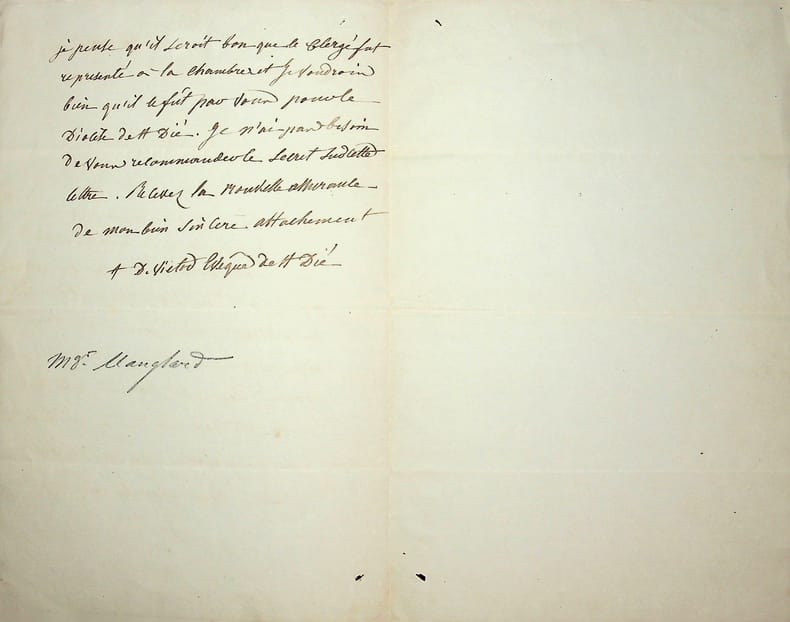 je pense qu'il seroit bon que le Clergé fut
représenté à la chambre et je voudrois
bien qu'il le fût par vous pour le
Diocèse de St Dié. Je n'ai pas besoin
de vous recommander le secret sur cette
lettre. Recevez la nouvelle assurance
de mon bien sincère attachement
+ D. Victor Evêque de St Dié
Mgr. Manglard